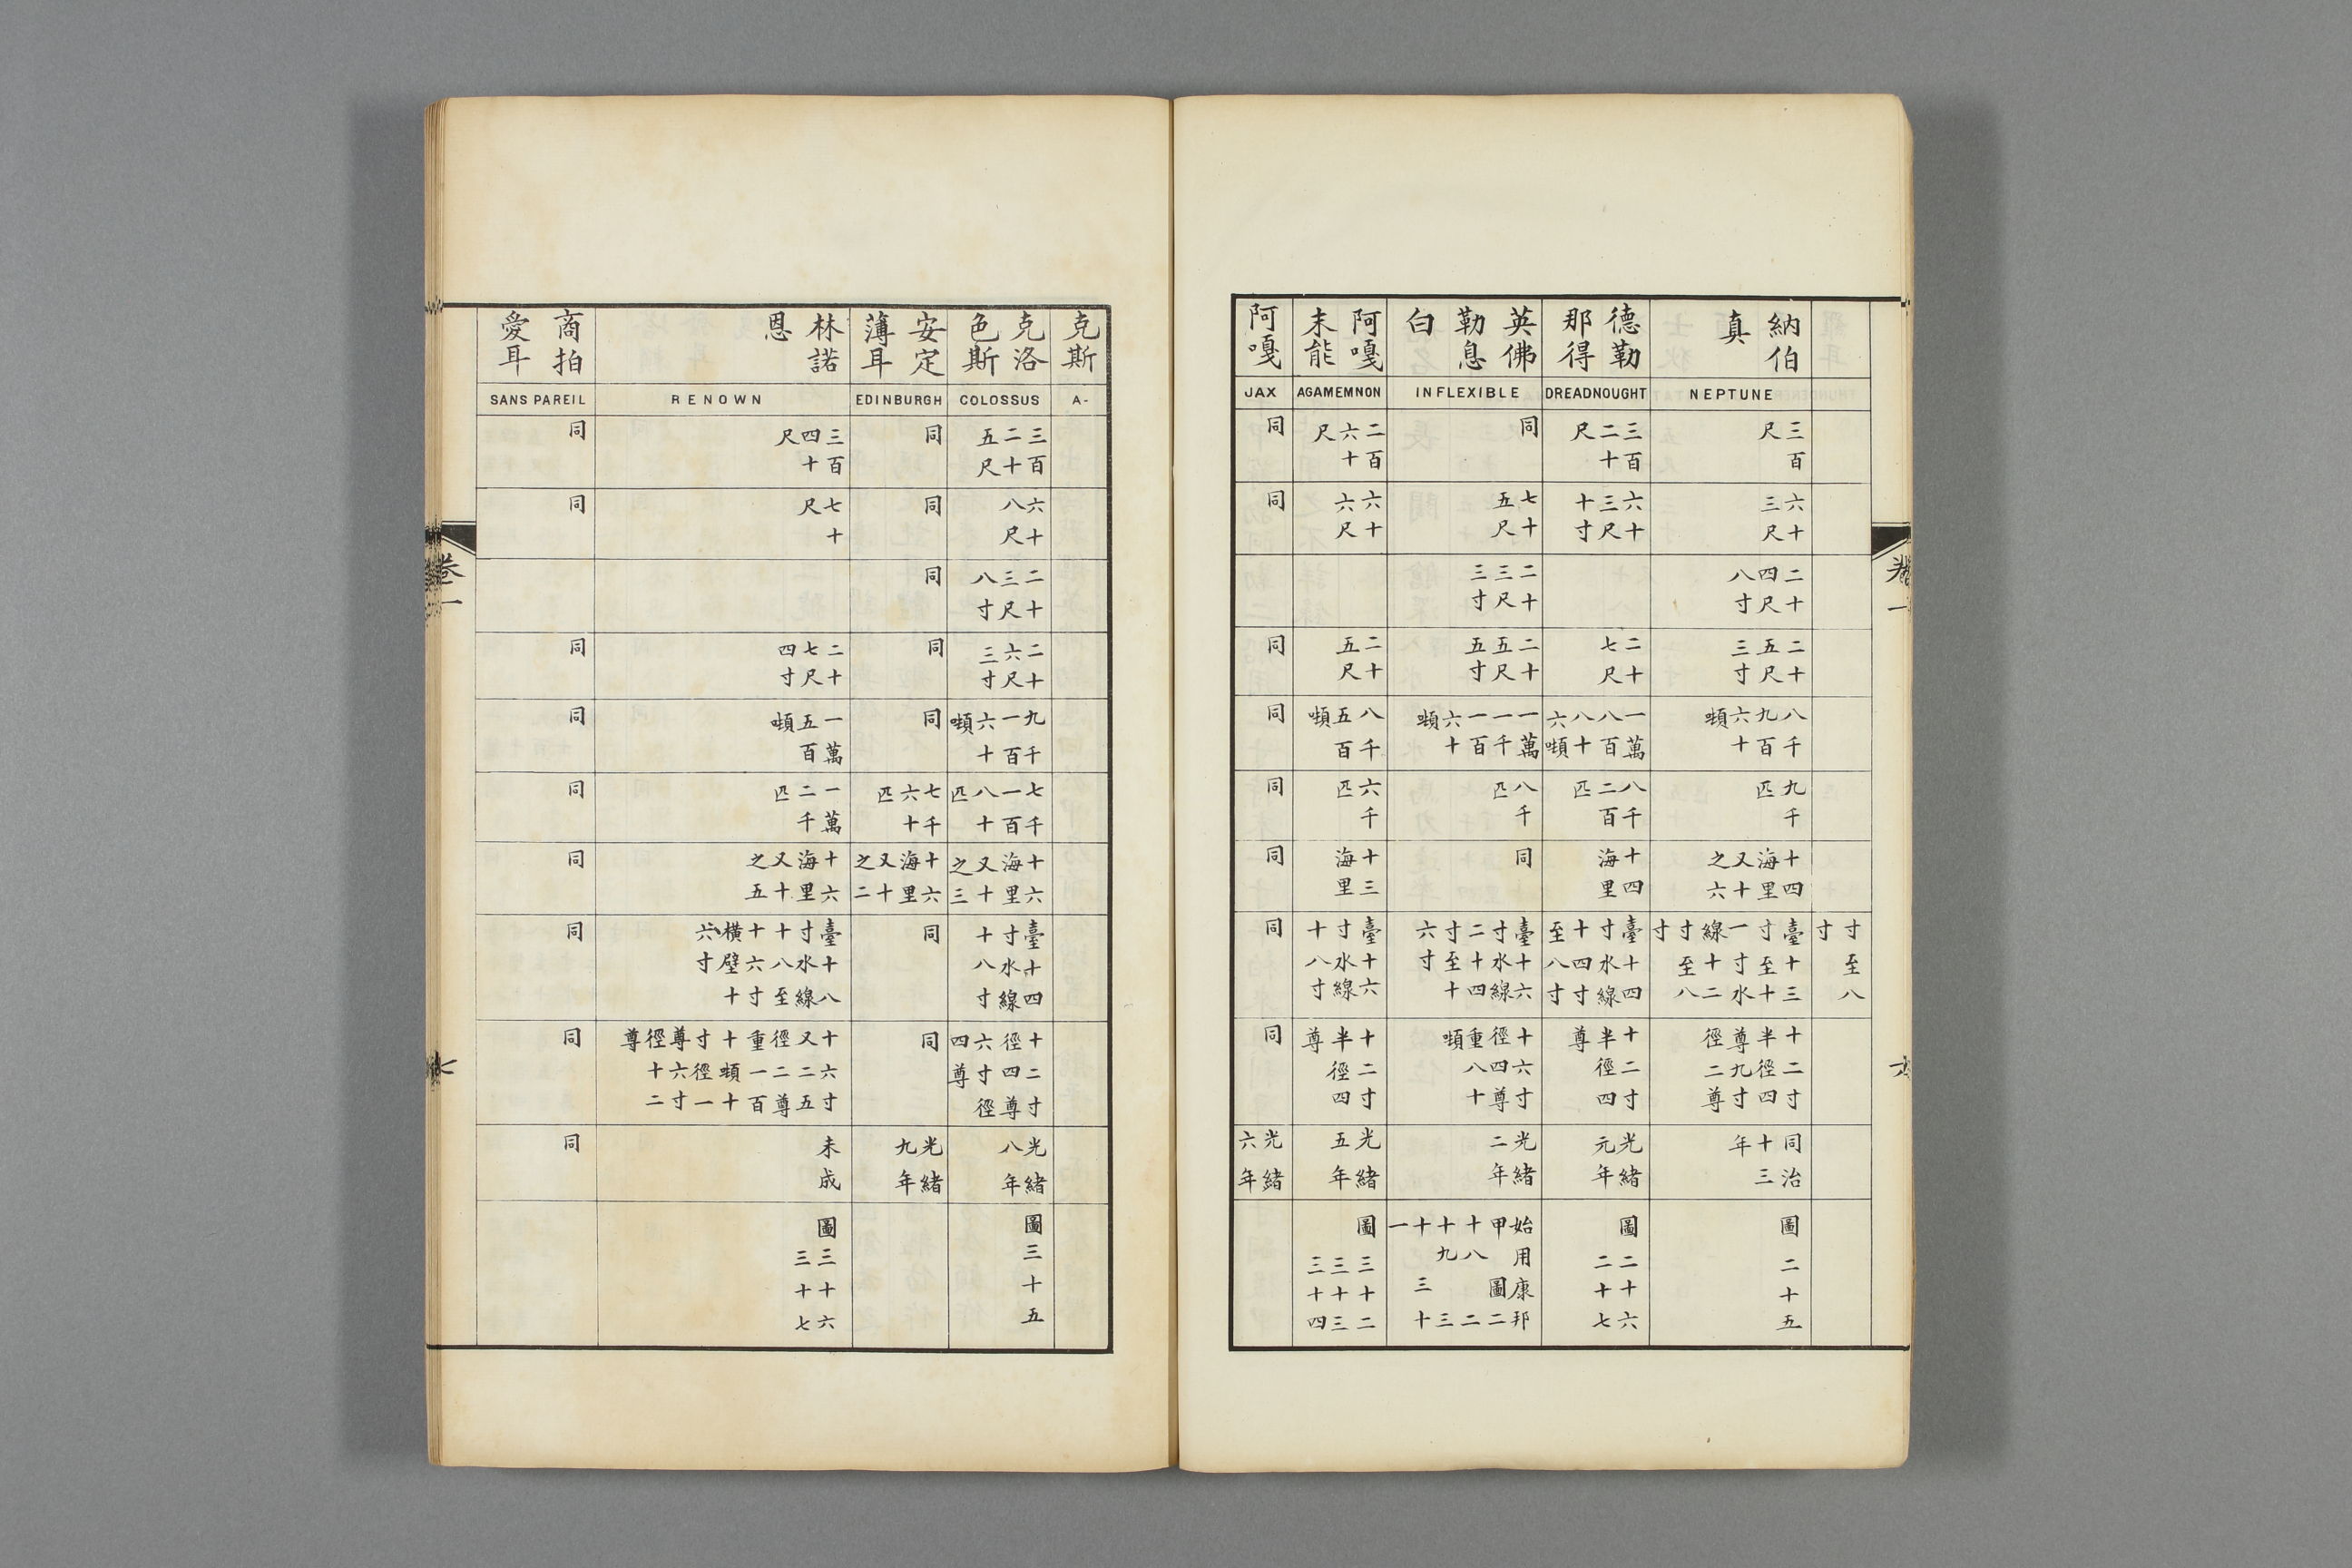 寸至八寸
納伯真
NEPTUNE
三百尺
六十三尺
二十四尺八寸
二十五尺三寸
八千九百六十噸
九千匹
十四海里又十之六
臺十三寸至十一寸水線十二寸至八寸
十二寸半徑四尊九寸徑二尊
同治十三年
圖二十五
德勒那得
DREADNOUGHT
三百二十尺
六十三尺十寸
二十七尺
一萬八百八十六噸
八千二百匹
十四海里
臺十四寸水線十四寸至八寸
十二寸半徑四尊
光緒元年
圖二十六二十七
英佛勒息白
INFLEXIBLE
同
七十五尺
二十三尺三寸
二十五尺五寸
一萬一千一百六十噸
八千匹
同
臺十六寸水線二十四寸至十六寸
十六寸徑四尊重八十噸
光緒二年
始用康邦甲圖二十八二十九三十三十一
阿嘎未能
AGAMEMNON
二百六十尺
六十六尺
二十五尺
八千五百噸
六千匹
十三海里
臺十六寸水線十八寸
十二寸半徑四尊
光緒五年
圖三十二三十三三十四
阿嘎
JAX
同
同
同
同
同
同
同
同
光緒六年
卷一
六
克斯
A-
克洛色斯
COLOSSUS
三百二十五尺
六十八尺
二十三尺八寸
二十六尺三寸
九千一百六十噸
七千一百八十匹
十六海里又十之三
臺十四寸水線十八寸
十二寸徑四尊六寸徑四尊
光緒八年
圖三十五
安定薄耳
EDINBURGH
同
同
同
同
同
七千六十匹
十六海里又十之二
同
同
光緒九年
林諾恩
RENOWN
三百四十尺
七十尺
二十七尺四寸
一萬五百噸
一萬二千匹
十六海里又十之五
臺十八寸水線十八至十六寸橫壁十六寸
十六寸又二五徑二尊重一百十噸十寸徑一尊六寸徑十二尊
未成
圖三十六三十七
商拍愛耳
SANS PAREIL
同
同
同
同
同
同
同
同
同
卷一
七